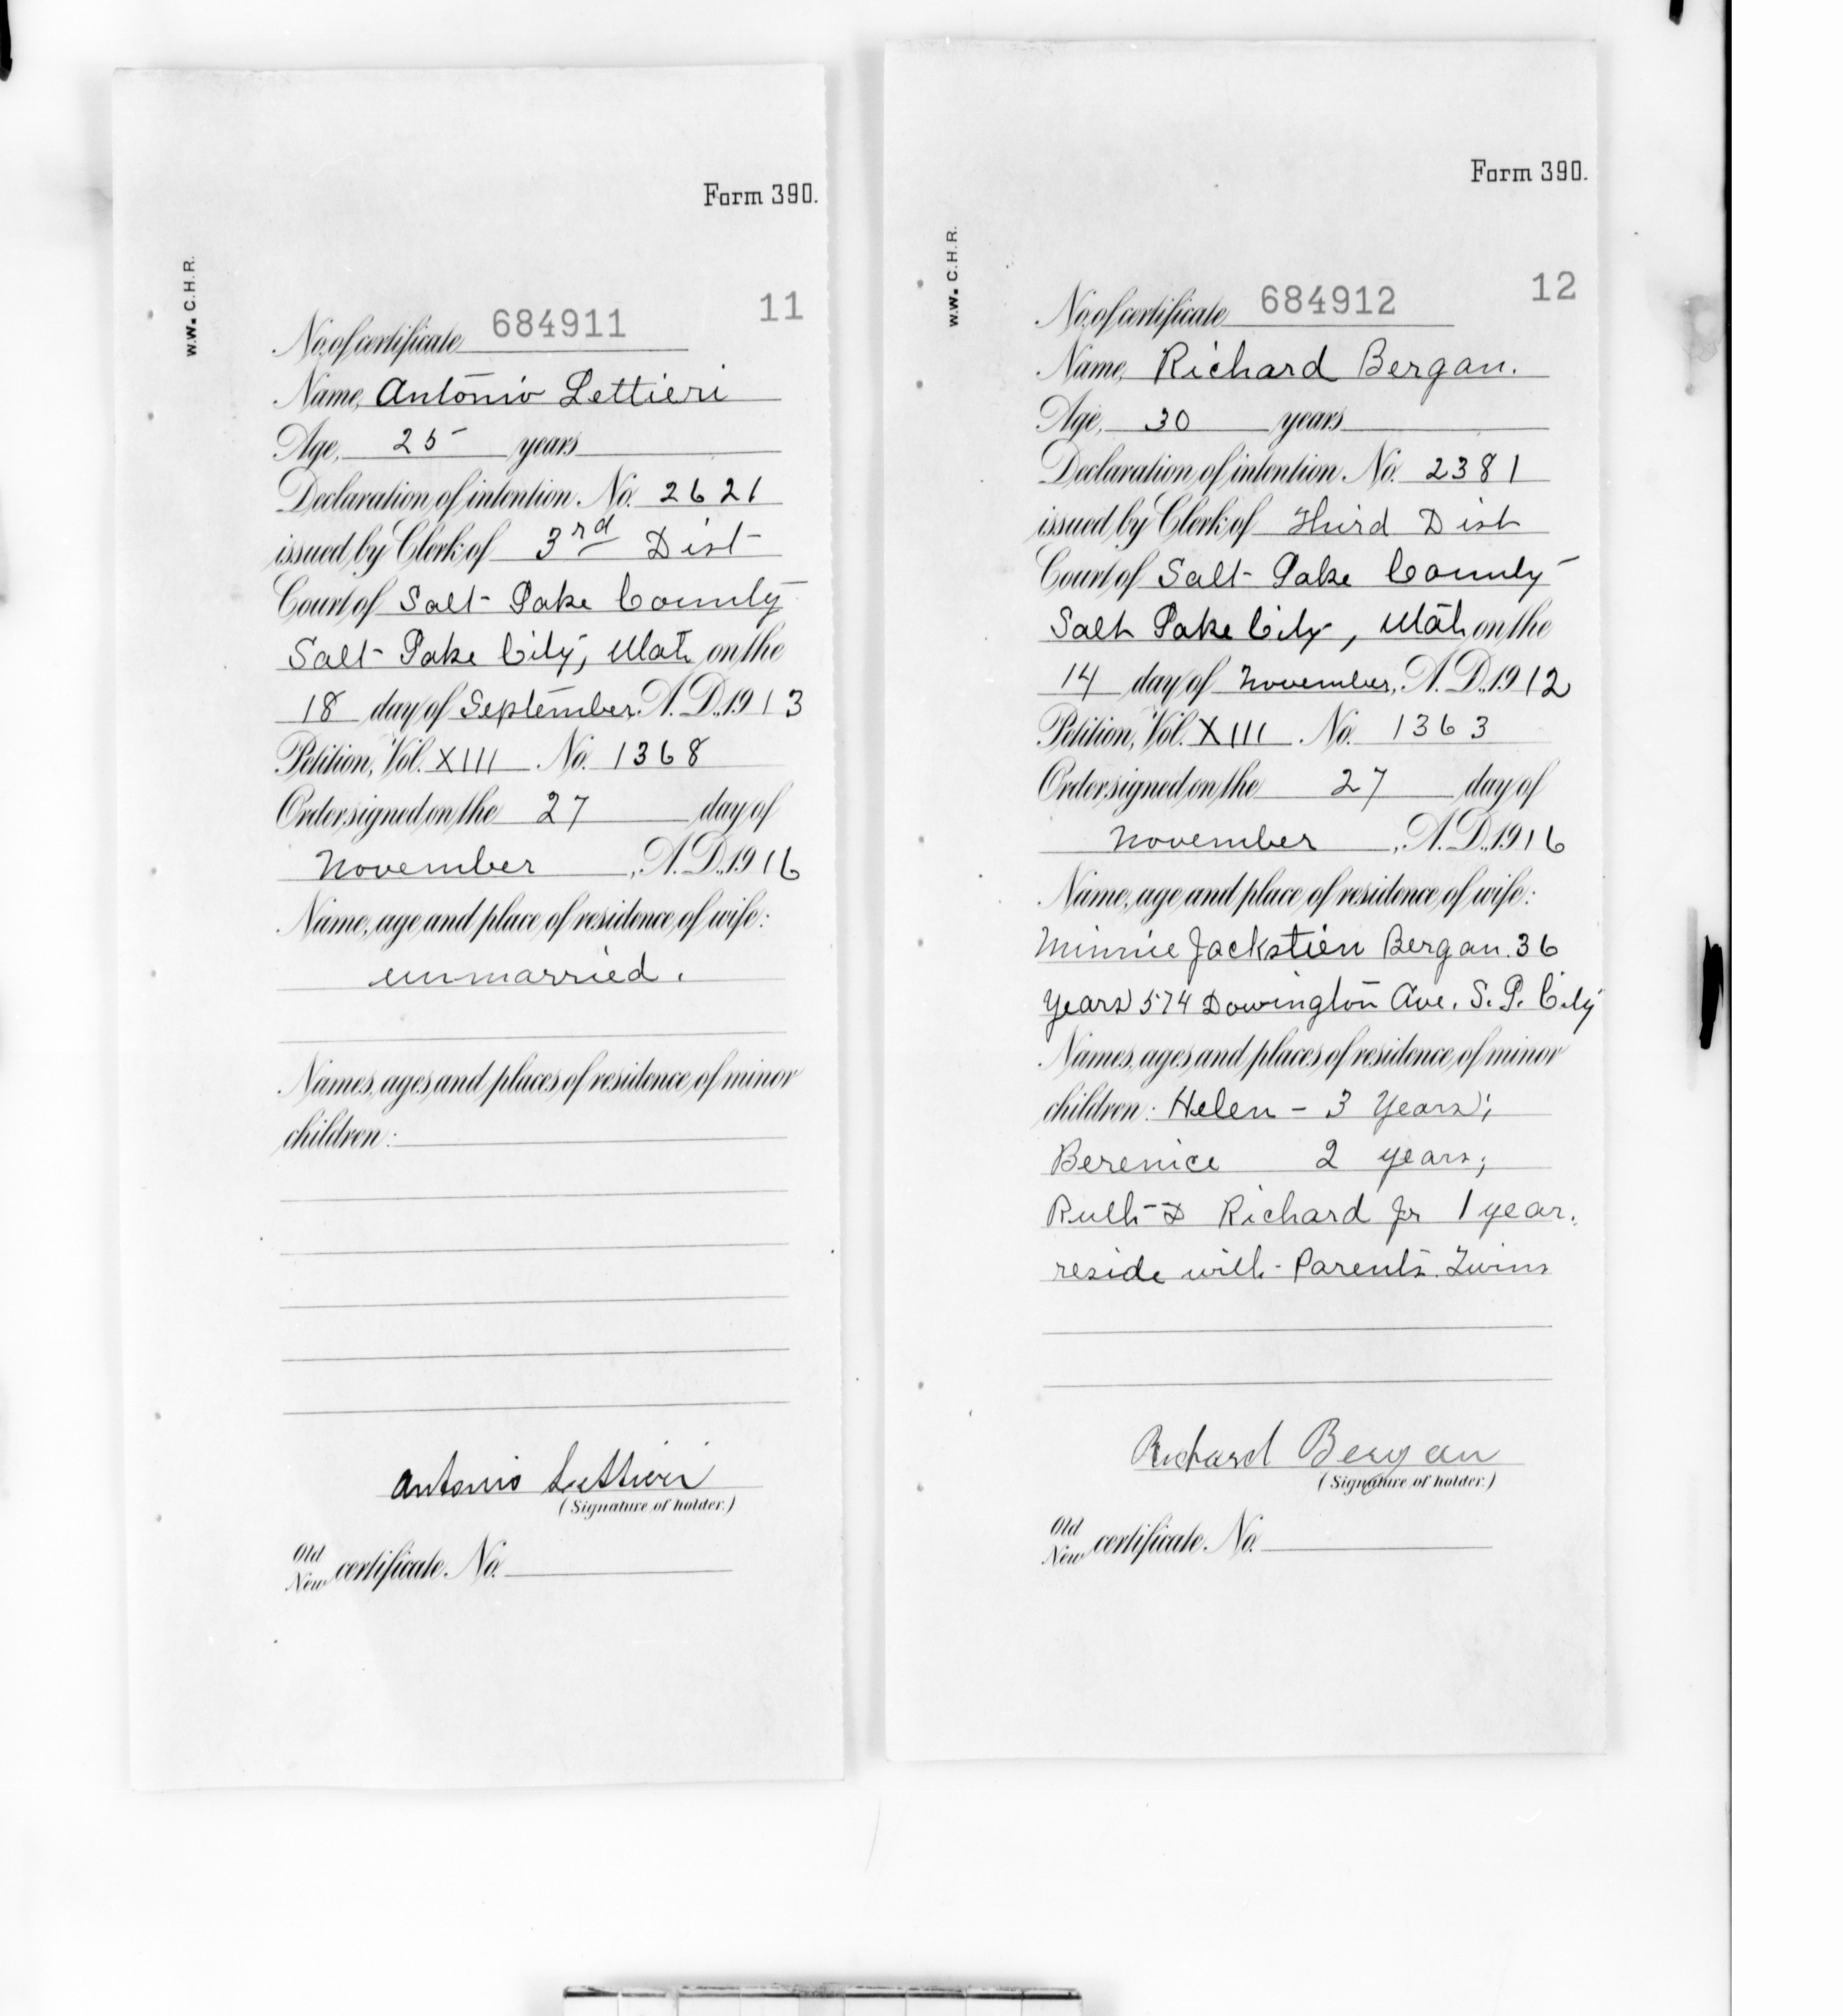 Form 390.
W.W. C.H.R.
11
No. of certificate 684911
Name, Antonio Lettieri
Age, 25 years
Declaration of intention No. 2621
issued by Clerk of 3rd Dist
Court of Salt Lake County
Salt Lake City, Utah on the
18 day of September, A.D. 1913
Petition, Vol. XIII No. 1368
Order signed on the 27 day of
November, A.D. 1916
Name, age and place of residence of wife:
unmarried.
Names, ages and places of residence of minor
children:
Antonio Lettieri
(Signature of holder.)
Old
New certificate No.
Form 390.
W.W. C.H.R.
12
No. of certificate 684912
Name, Richard Bergan.
Age, 30 years
Declaration of intention No. 2381
issued by Clerk of Third Dist
Court of Salt Lake County
Salt Lake City, Utah on the
14 day of November, A.D. 1912
Petition, Vol. XIII No. 1363
Order signed on the 27 day of
November, A.D. 1916
Name, age and place of residence of wife:
Minnie Jackstien Bergan. 36
Years 574 Dowington Ave. S. L. City
Names, ages and places of residence of minor
children: Helen - 3 Years;
Berenice 2 years;
Ruth & Richard Jr 1 year.
reside with Parents. Twins
Richard Bergan
(Signature of holder.)
Old
New certificate No.